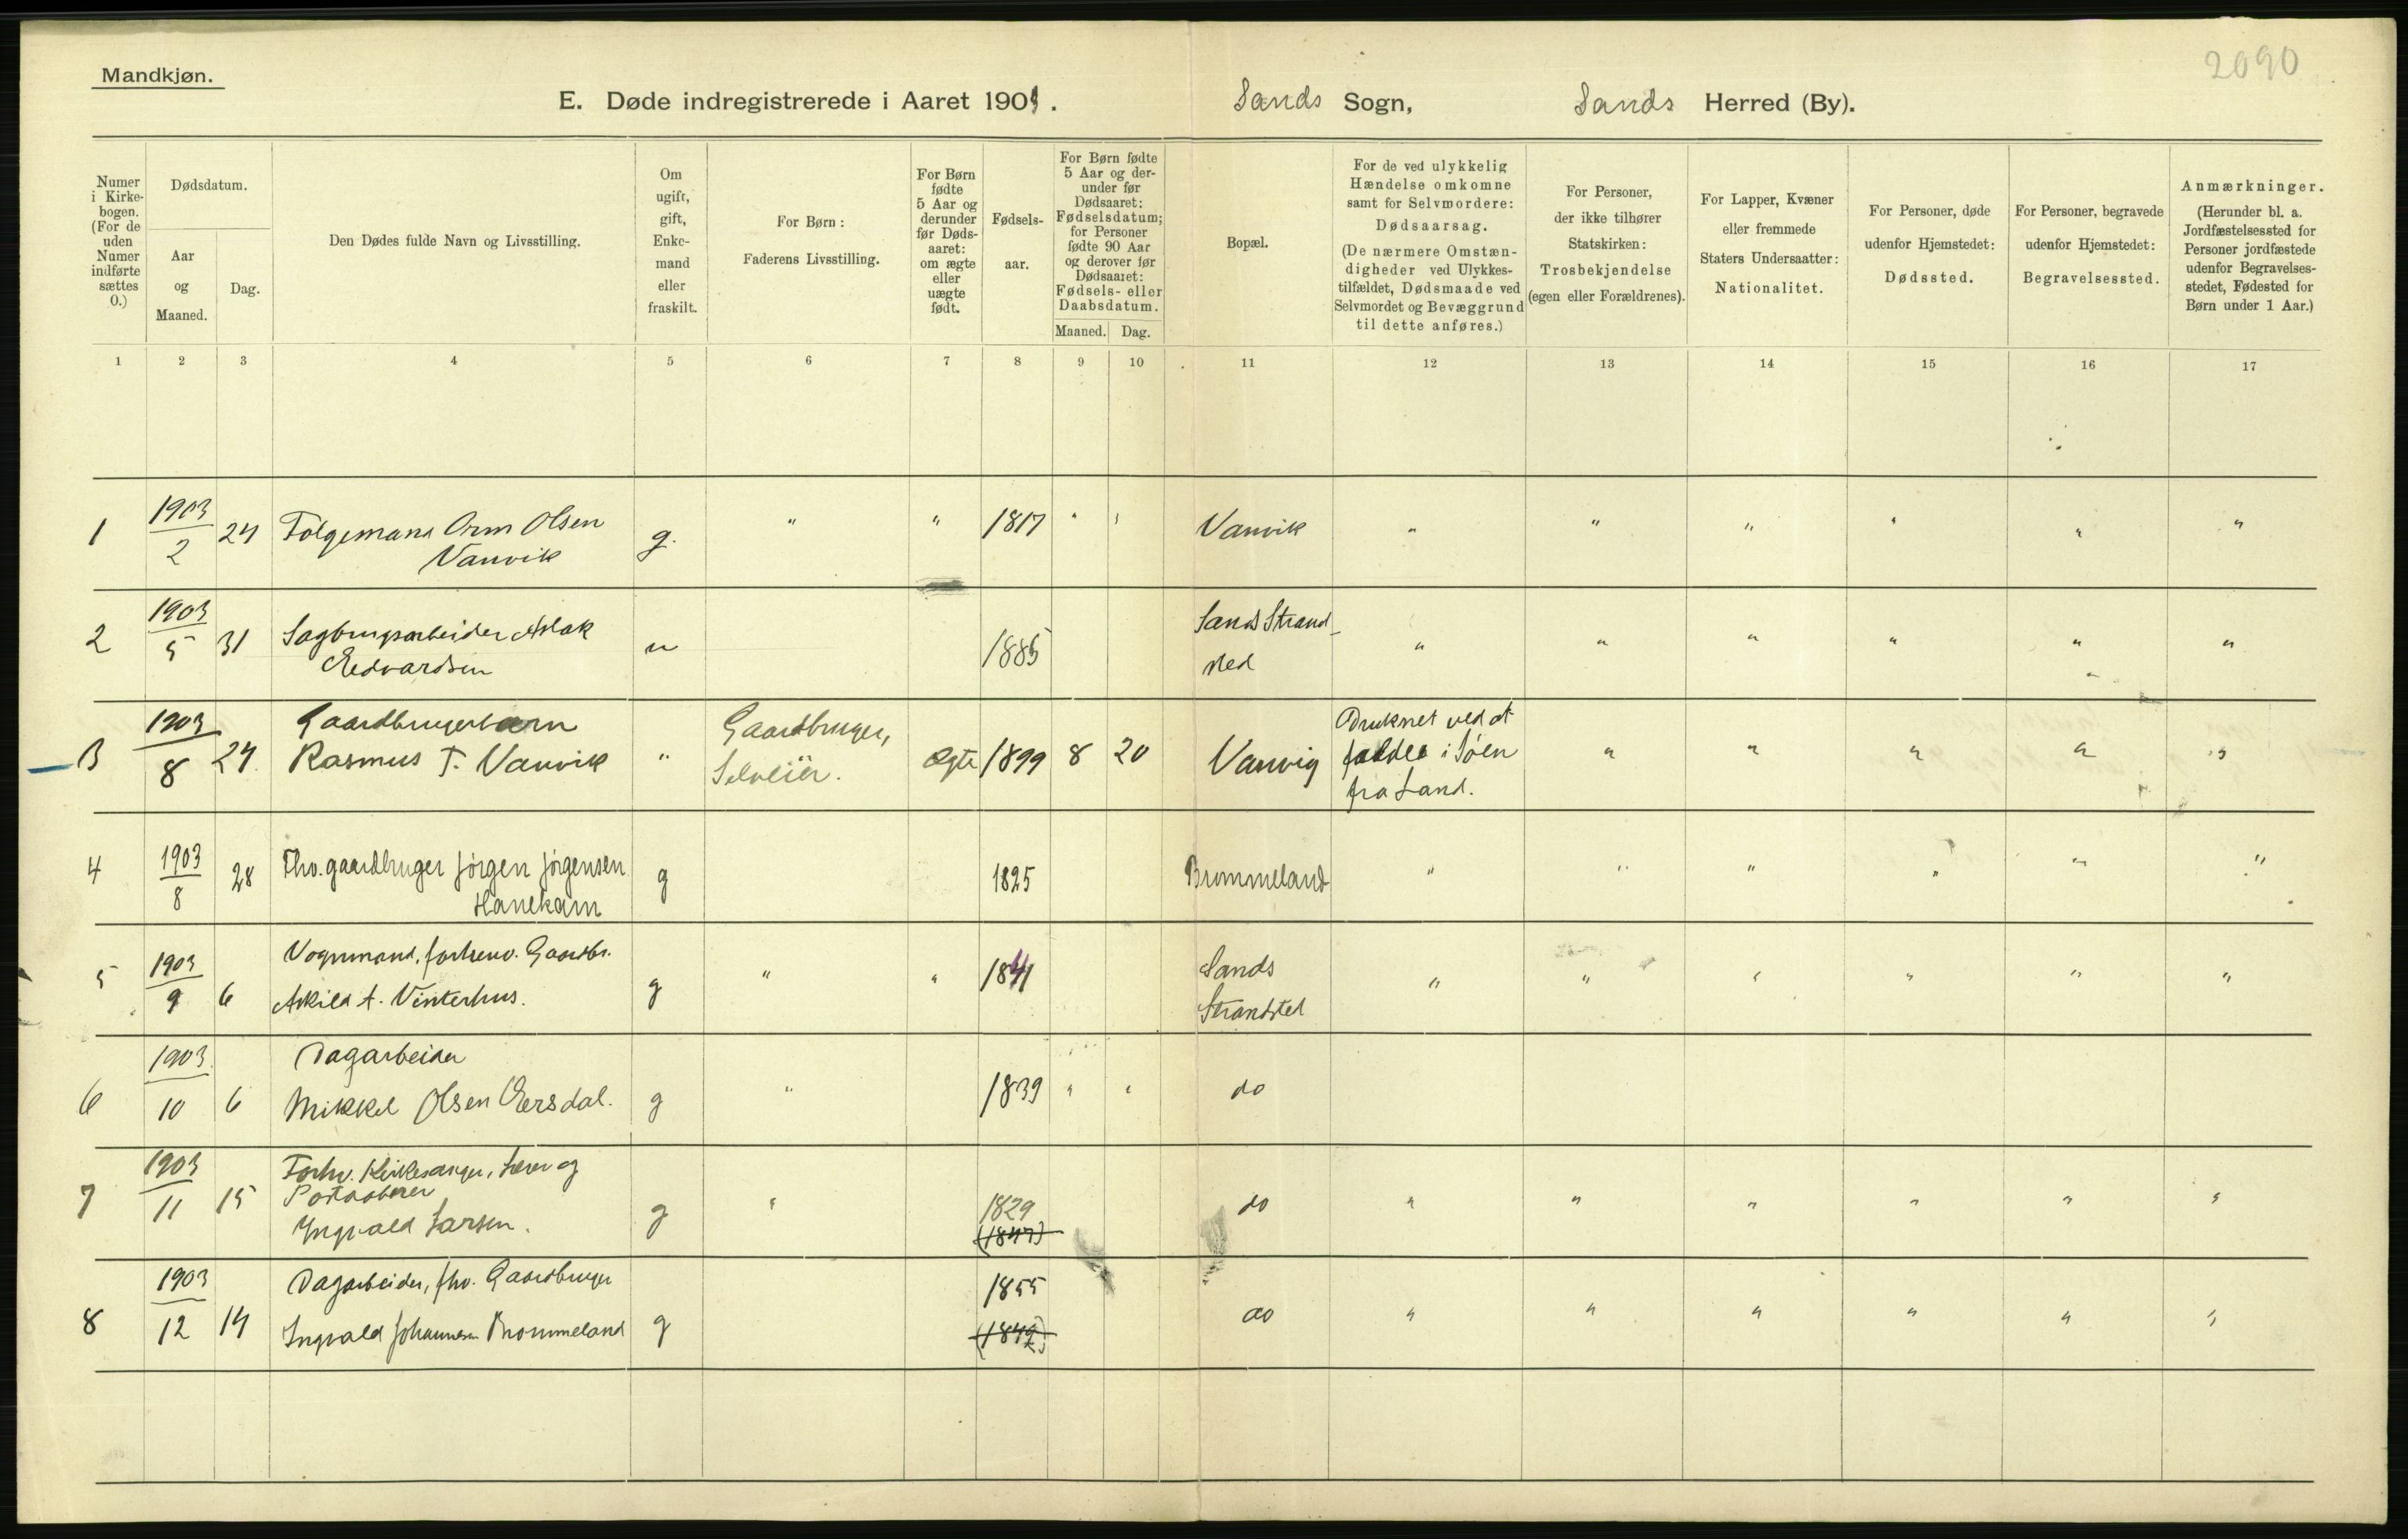 2090
Mandkjøn.
E. Døde indregistrerede i Aaret 1903. Sands Sogn, Sands Herred (By).
Numer i Kirke-bogen. (For de uden Numer indførte sættes 0.)
Dødsdatum.
Aar og Maaned.
Dag.
Den Dødes fulde Navn og Livsstilling.
Om ugift, gift, Enke-mand eller fraskilt.
For Børn: Faderens Livsstilling.
For Børn fødte 5 Aar og derunder før Døds-aaret: om ægte eller uægte født.
Fødsels-aar.
For Børn fødte 5 Aar og der-under før Dødsaaret: Fødselsdatum; for Personer fødte 90 Aar og derover før Dødsaaret: Fødsels- eller Daabsdatum.
Maaned. Dag.
Bopæl.
For de ved ulykkelig Hændelse omkomne samt for Selvmordere: Dødsaarsag. (De nærmere Omstæn-digheder ved Ulykkes-tilfældet, Dødsmaade ved Selvmordet og Bevæggrund til dette anføres.)
For Personer, der ikke tilhører Statskirken: Trosbekjendelse (egen eller Forældrenes).
For Lapper, Kvæner eller fremmede Staters Undersaatter: Nationalitet.
For Personer, døde udenfor Hjemstedet: Dødssted.
For Personer, begravede udenfor Hjemstedet: Begravelsessted.
Anmærkninger. (Herunder bl. a. Jordfæstelsessted for Personer jordfæstede udenfor Begravelses-stedet, Fødested for Børn under 1 Aar.)
1 2 3 4 5 6 7 8 9 10 11 12 13 14 15 16 17
1 1903/2 24 Folgemand Orm Olsen Vanvik g. " " 1817 " " Vanvik " " " " " "
2 1903/5 31 Sagbrugsarbeider Aslak Edvardsen u 1885 Sands Strand-sted " " " " " "
3 1903/8 24 Gaardbrugerbarn Rasmus T. Vanvik " Gaardbruger, Selveier. Ægte 1899 8 20 Vanvig Druknet ved at falde i Søen fra Land. " " " " "
4 1903/8 28 Fhv. gaardbruger Jørgen Jørgensen Hanekam g 1825 Brommeland " " " " " "
5 1903/9 6 Vognmand, forhenv. Gaardbr. Askild A. Vinterhus. g " " 1841 Sands Strandsted " " " " " "
6 1903/10 6 Dagarbeider Mikkel Olsen Eersdal. g " 1839 " " do
7 1903/11 15 Forhv. Kirkesanger, Lærer og Postaabner Ingvald Larsen. g " 1829 (1847) do " " " " " "
8 1903/12 14 Dagarbeider, fhv. Gaardbruger Ingvald Johannesen Brommeland g 1855 (1842) do " " " " " "